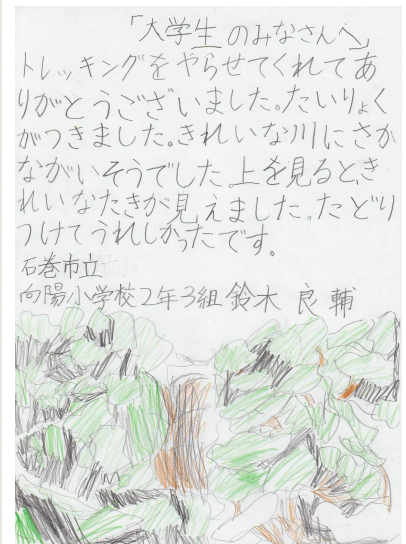 「大学生のみなさんへ」
トレッキングをやらせてくれてあ
りがとうございました。たいりょく
がつきました。きれいな川にさか
ながいそうでした。上を見ると、き
れいなたきが見えました。たどり
つけてうれしかったです。
石巻市立
向陽小学校2年3組 鈴木 良 輔